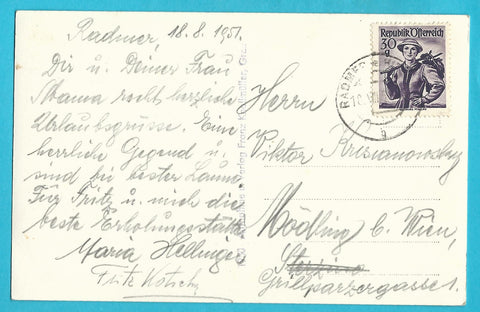 Radmer, 18.8.1951.
Dir u. Deiner Frau
Mama recht herzliche
Urlaubsgrüsse. Eine
herrliche Gegend u.
sind bis bester Laune
Für Fritz u. mich die
beste Erholungsstätte
Maria Hellinger
Fritz
Verlag Franz
Republik Österreich
30
g
RADMER
Herrn
Viktor Krisianowsky
Mödling b. Wien,
Grillparzergasse 1.